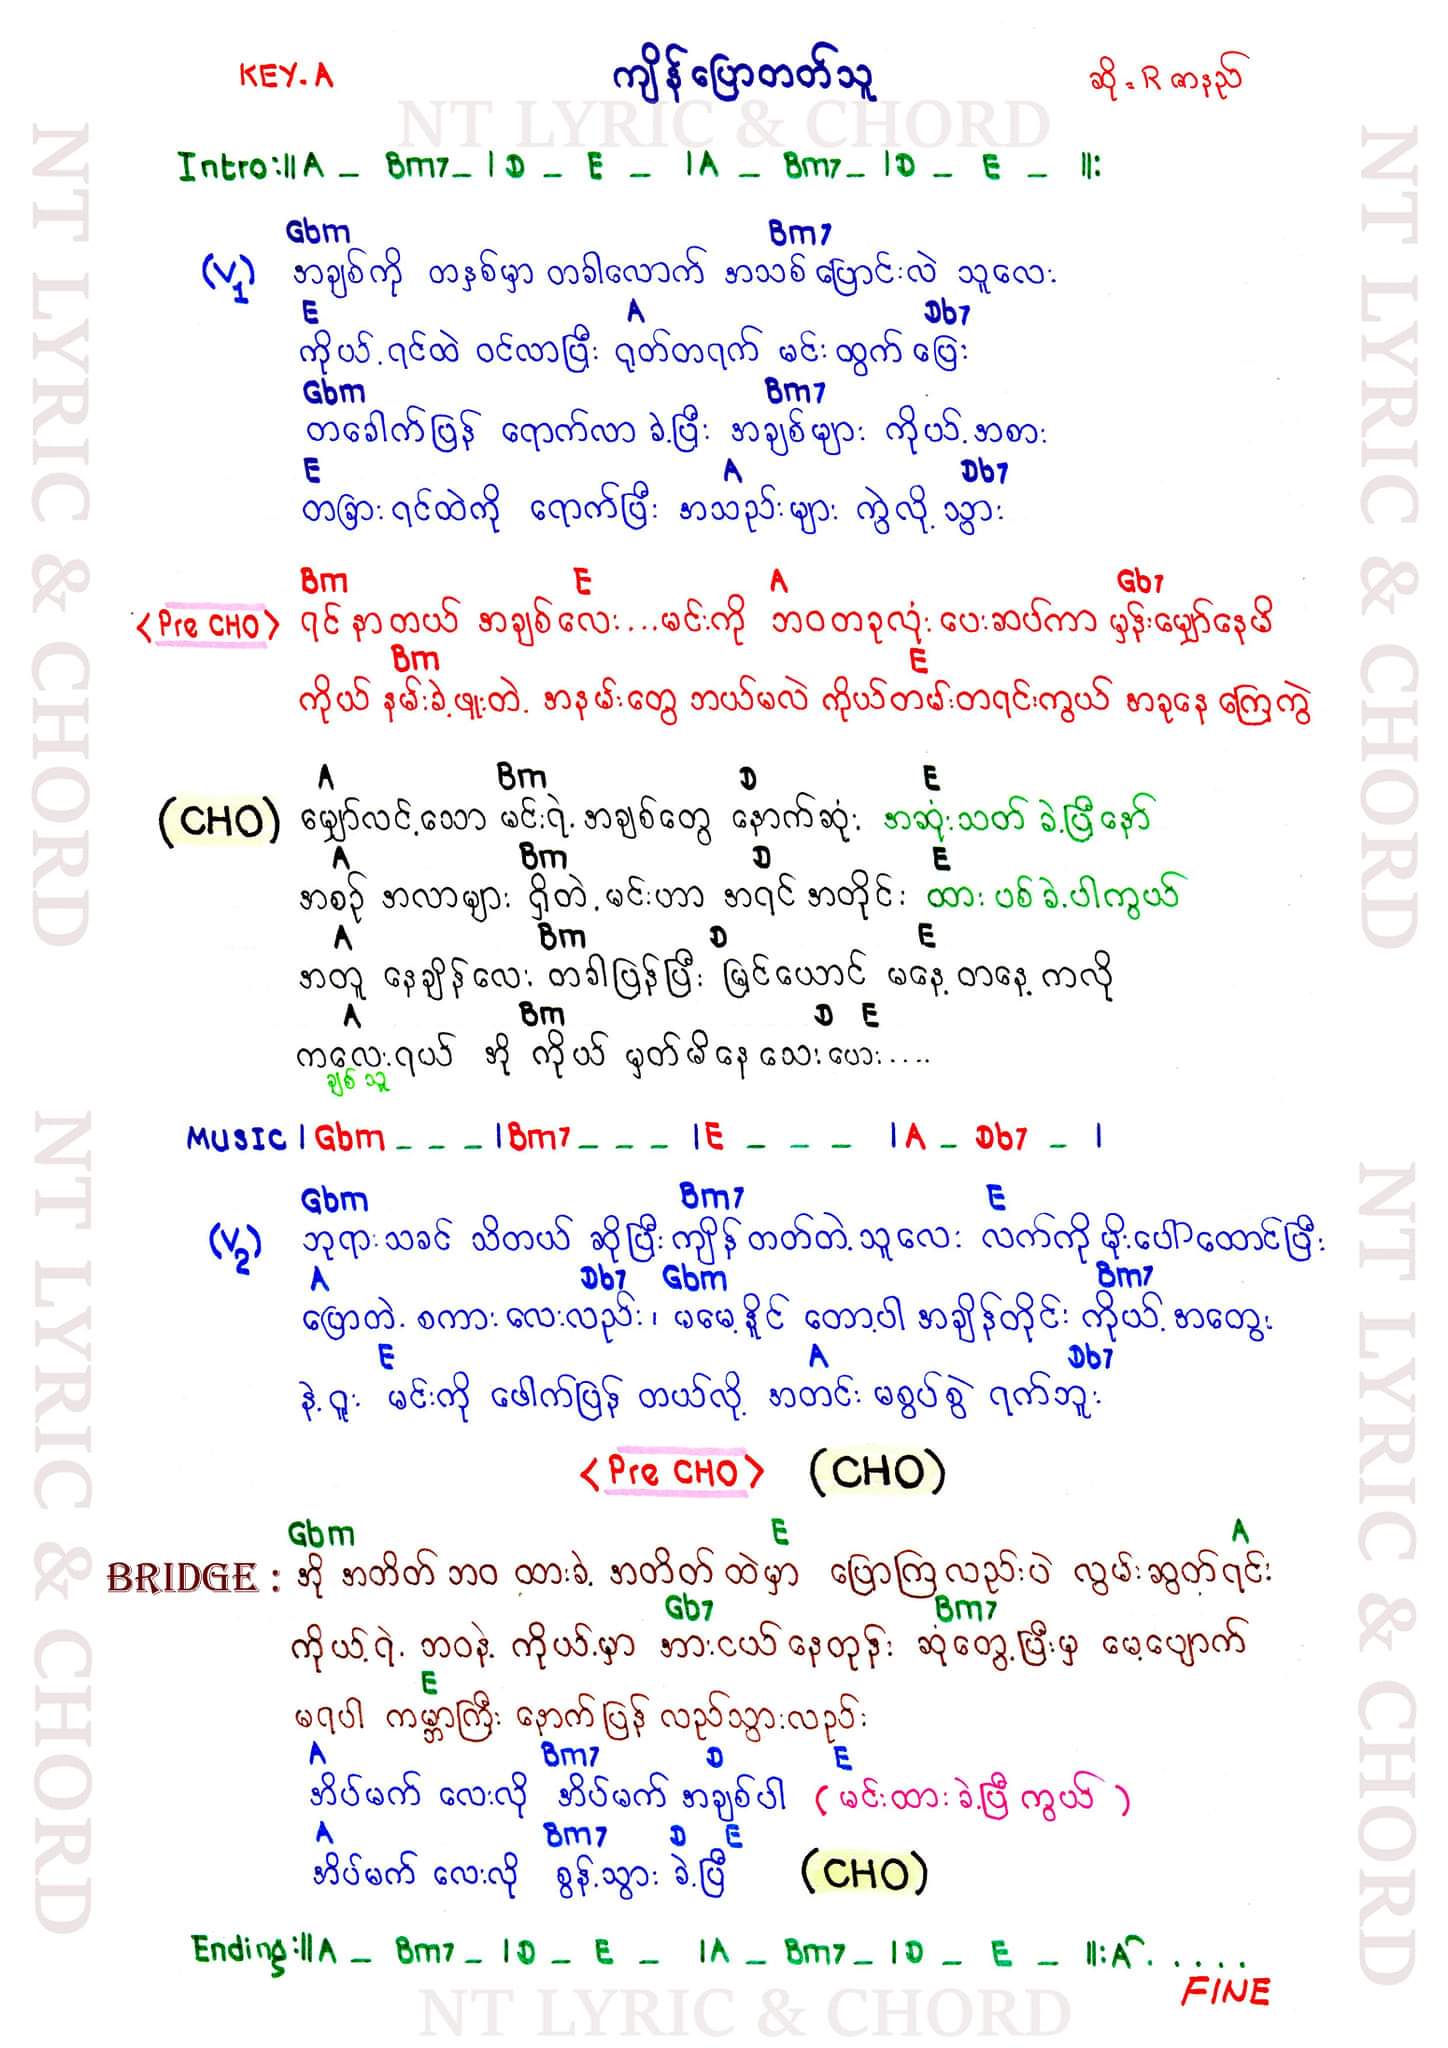 KEY.A ကျိန်ပြောတတ်သူ ဆို = R ဇာနည်
NT LYRIC & CHORD
Intro:||A _ Bm7_ | D _ E _ |A _ Bm7_ |D _ E _ ||:
Gbm Bm7
(V1) အချစ်ကို တနှစ်မှာ တခါလောက် အသစ်ပြောင်းလဲ သူလေး
E A Db7
ကိုယ့်ရင်ထဲ ဝင်လာပြီး ရုတ်တရက် မင်းထွက်ပြေး
Gbm Bm7
တခေါက်ပြန် ရောက်လာခဲ့ပြီး အချစ်များ ကိုယ့်အစား
E A Db7
တခြားရင်ထဲကို ရောက်ပြီး အသည်းများ ကွဲလို့သွား
Bm E A Gb7
<Pre CHO> ရင်နာတယ် အချစ်လေး...မင်းကို ဘဝတခုလုံး ပေးဆပ်ကာ မှန်းမျှော်နေမိ
Bm E
ကိုယ်နမ်းခဲ့ဖူးတဲ့ အနမ်းတွေ ဘယ်မလဲ ကိုယ်တမ်းတရင်းကွယ် အခုနေ ကြေကွဲ
A Bm D E
(CHO) မျှော်လင့်သော မင်းရဲ့အချစ်တွေ နောက်ဆုံး အဆုံးသတ်ခဲ့ပြီနော်
A Bm D E
အစဉ် အလာများ ရှိတဲ့မင်းဟာ အရင်အတိုင်း ထားပစ်ခဲ့ပါကွယ်
A Bm D E
အတူ နေချိန်လေး တခါပြန်ပြီး မြင်ယောင် မနေ့တနေ့ကလို
A Bm D E
ကလေးရယ် အို ကိုယ် မှတ်မိနေသေးပေါ့....
ချစ်သူ
MUSIC | Gbm _ _ _ |Bm7 _ _ _ |E _ _ _ |A _ Db7 _ |
Gbm Bm7 E
(V2) ဘုရားသခင် သိတယ် ဆိုပြီးကျိန်တတ်တဲ့သူလေး လက်ကိုမိုးပေါ်ထောင်ပြီး
A Db7 Gbm Bm7
ပြောတဲ့ စကားလေးလည်း၊ မမေ့နိုင်တော့ပါ အချိန်တိုင်း ကိုယ့်အတွေး
E A Db7
နဲ့ရူး မင်းကို ဖေါက်ပြန်တယ်လို့ အတင်းမစွပ်စွဲရက်ဘူး
<Pre CHO> (CHO)
Gbm E A
BRIDGE : အို အတိတ်ဘဝ ထားခဲ့အတိတ်ထဲမှာ ပြောကြလည်းပဲ လွမ်းဆွတ်ရင်း
Gb7 Bm7
ကိုယ့်ရဲ့ဘဝနဲ့ ကိုယ့်မှာ အားငယ်နေတုန်း ဆုံတွေ့ပြီးမှ မေ့ပျောက်
E
မရပါ ကမ္ဘာကြီး နောက်ပြန်လည်သွားလည်း
A Bm7 D E
အိပ်မက်လေးလို အိပ်မက်အချစ်ပါ (မင်းထားခဲ့ပြီကွယ်)
A Bm7 D E
အိပ်မက်လေးလို စွန့်သွားခဲ့ပြီ (CHO)
Ending:||A _ Bm7 _ |D _ E _ |A _ Bm7_ |D _ E _ ||:A . . . . .
FINE
NT LYRIC & CHORD
NT LYRIC & CHORD
NT LYRIC & CHORD
NT LYRIC & CHORD
NT LYRIC & CHORD